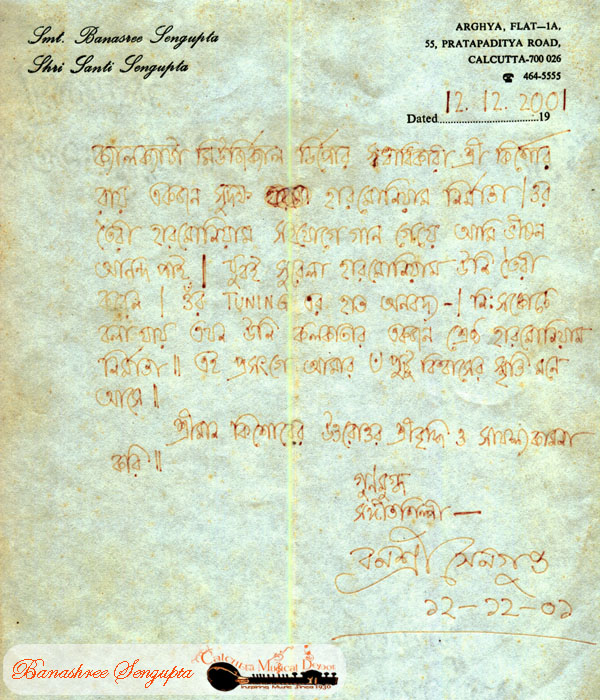 Smt. Banasree Sengupta
Shri Santi Sengupta
ARGHYA, FLAT—1A,
55, PRATAPADITYA ROAD,
CALCUTTA-700 026
☎ 464-5555
Dated 12.12.2001 19
ক্যালকাটা মিউজিক্যাল ডিপোর স্বত্বাধিকারী শ্রী কিশোর
রায় একজন সুদক্ষ হারমোনিয়াম নির্মাতা। ওঁর
তৈরী হারমোনিয়াম সহযোগে গান গেয়ে আমি ভীষণ
আনন্দ পাই। খুবই সুরেলা হারমোনিয়াম উনি তৈরী
করেন। ওঁর TUNING এর হাত অনবদ্য -। নিঃসঙ্কোচে
বলা যায় এখন উনি কলকাতার একজন শ্রেষ্ঠ হারমোনিয়াম
নির্মাতা॥ এই প্রসংগে আমার ৺ বিশ্বাসের স্মৃতি মনে
আসে॥
শ্রীমান কিশোরের উত্তরোত্তর শ্রীবৃদ্ধি ও সাফল্য কামনা
করি॥
গুণমুগ্ধ
সঙ্গীতশিল্পী —
বনশ্রী সেনগুপ্ত
১২-১২-০১
Banashree Sengupta
Calcutta Musical Depot
Inspiring Music Since 1930